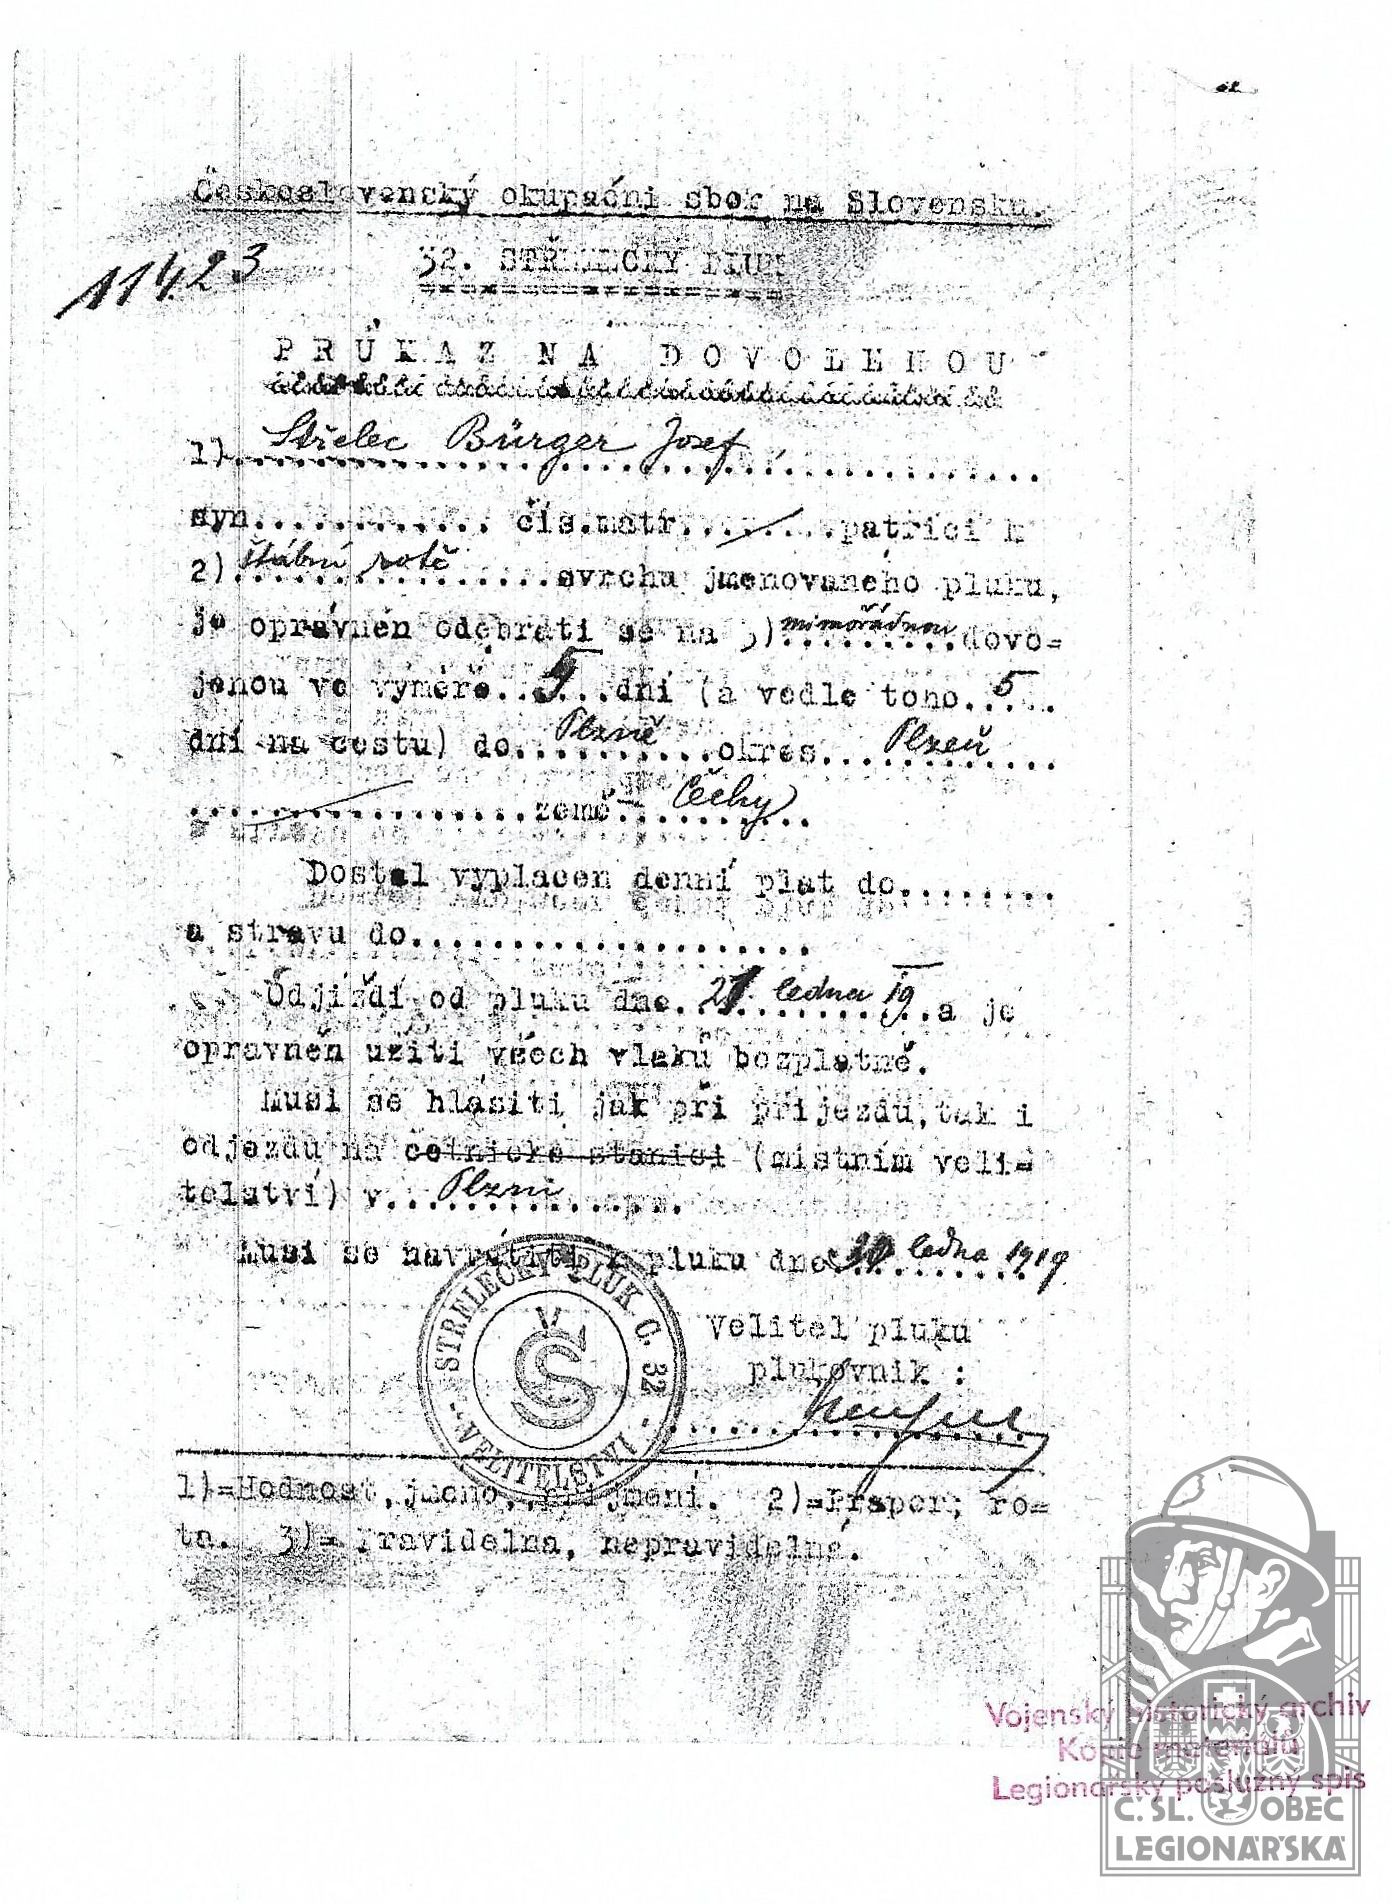 Československý okupační sbor na Slovensku.
11423
32. STŘELECKÝ PLUK
PRŮKAZ NA DOVOLENOU
1) Střelec Bürger Josef
syn............ čís.matr.........patřící k
2) štábní rotě svrchu jmenovaného pluku,
je oprávněn odebrati se na 3) mimořádnou dovo=
lenou ve výměře..5...dní (a vedle toho..5..
dní na cestu) do Plzně okres Plzeň
země Čechy
Dostal vyplacen denní plat do........
a stravu do....................
Odjíždí od pluku dne 21. ledna 19 a je
oprávněn užíti všech vlaků bezplatně.
Musí se hlásiti jak při příjezdu, tak i
odjezdu na četnické stanici (místním veli=
telství) v Plzni
Musí se navrátiti k pluku dne ledna 1919
Velitel pluku
plukovník :
STŘELECKÝ PLUK Č. 32
ČS
VELITELSTVÍ
1)=Hodnost, jméno, příjmení. 2)=Prapor; ro=
ta. 3)= Pravidelná, nepravidelná.
Vojenský historický archiv
Kopie materiálu
Legionářský poslužný spis
Č. SL. OBEC
LEGIONÁŘSKÁ